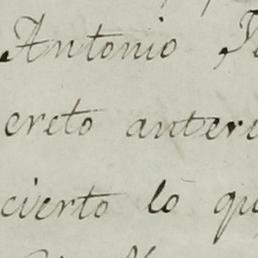 Antonio
ereto anteri
cierto lo qu